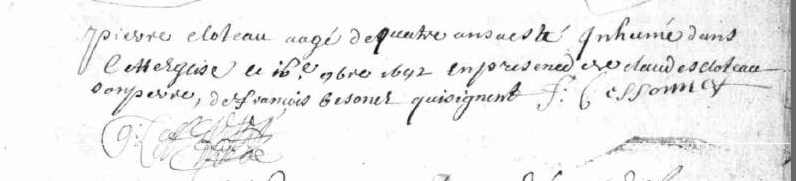 pierre cloteau aagé de quatre ans a esté Inhumé dans
cette Eglise le 16.e 9bre 1692 en presence de claude cloteau
son pere, de françois besonet qui signent f. Cessonnet